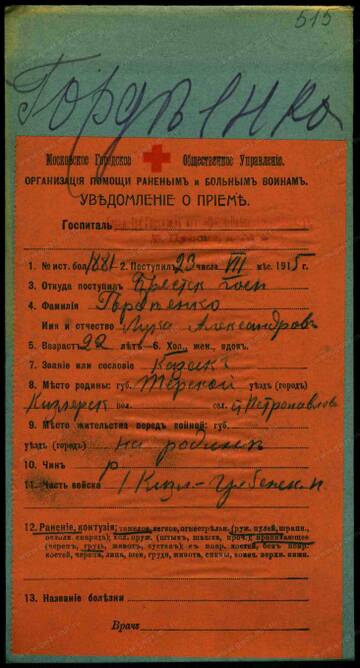 515
Гордѣенко
Московское Городское Общественное Управленіе.
ОРГАНИЗАЦІЯ ПОМОЩИ РАНЕНЫМЪ и БОЛЬНЫМЪ ВОИНАМЪ.
УВѢДОМЛЕНІЕ О ПРІЕМѢ.
Госпиталь
1. № ист. бол. 1881 2. Поступилъ 23 числа VII мѣс. 1915 г.
3. Откуда поступилъ Брестск
4. Фамилія
Имя и отчество Лука Александровъ
5. Возрастъ 22 лѣтъ 6. Хол., жен., вдовъ.
7. Званіе или сословіе Казакъ
8. Мѣсто родины: губ. Терской уѣздъ (городъ)
вол. сел. Петропавлов
9. Мѣсто жительства передъ войной: губ.
уѣздъ (городъ) на родинѣ
10. Чинъ р
11. Часть войска 1 Кизл-Гребенск п
12. Раненіе, контузія: тяжелое, легкое, огнестрѣльн. (руж. пулей, шрапн.,
оскол. снаряда); хол. оруж. (штыкъ, шашка, проч.); проникающее
(черепъ, грудь, животъ, суставъ); съ повр. костей, безъ повр.
костей, черепа, лица, шеи, груди, живота, спины, конеч. верхн. нижн.
13. Названіе болѣзни
Врачъ